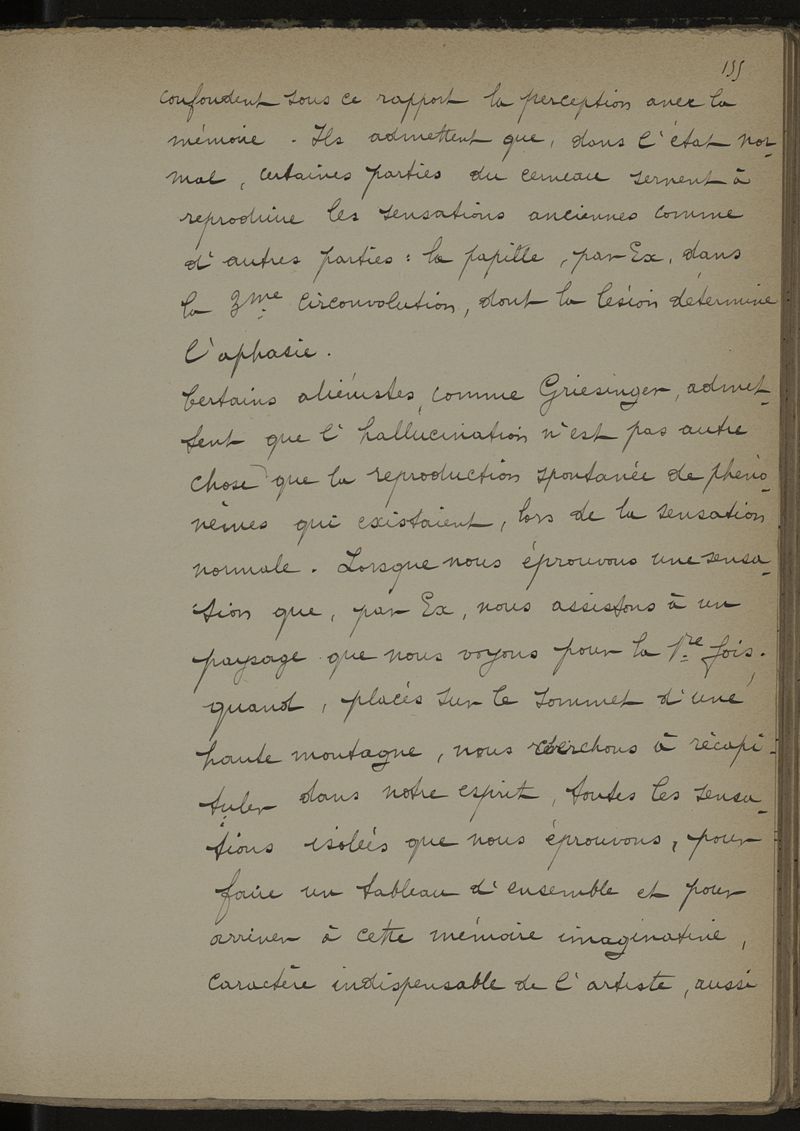 155
confondent sous ce rapport la perception avec la
mémoire . Ils admettent que, dans l'état nor-
mal, certaines parties du cerveau servent à
reproduire les sensations anciennes comme
d'autres parties : la papille, par Ex, dans
la 3me circonvolution, dont la lésion détermine
l'aphasie.
Certains aliénistes, comme Griesinger, admet-
tent que l'hallucination n'est pas autre
chose que la reproduction spontanée de phéno-
mèmes qui existaient, lors de la sensation
normale. Lorsque nous éprouvons une sensa-
tion que, par Ex, nous assistons à un
paysage que nous voyons pour la 1re fois,
quand, placés sur le sommet d'une
haute montagne, nous cherchons à récapi-
tuler dans notre esprit, toutes les sensa-
tions isolées que nous éprouvons, pour
faire un tableau d'ensemble et pour
arriver à cette mémoire imaginative,
caractère indispensable de l'artiste, aussi